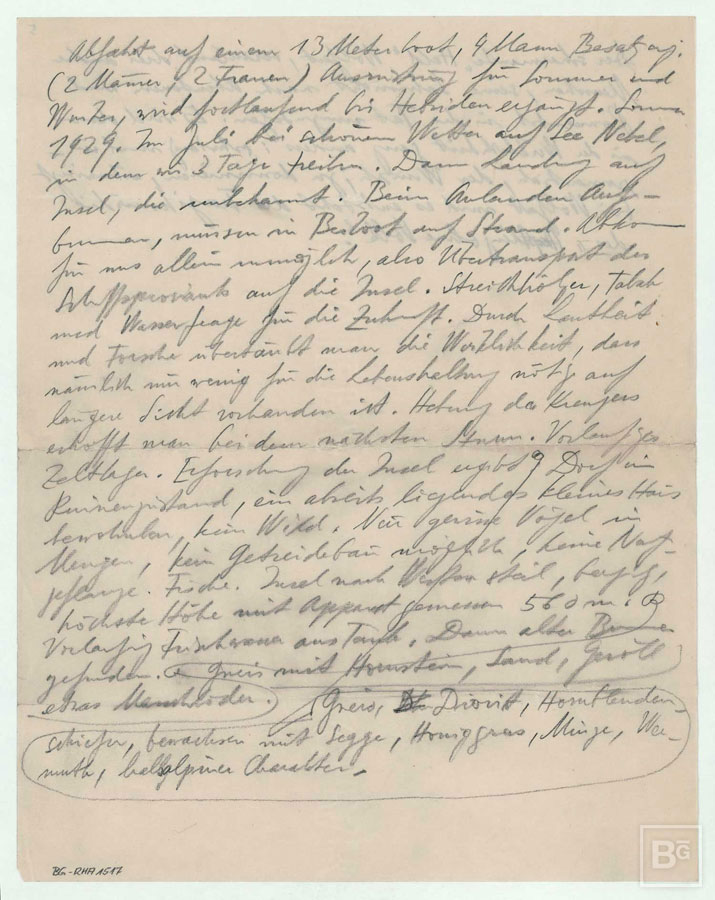 Abfahrt auf einem 13 Meter boot, 4 Mann Besatzung.
(2 Männer, 2 Frauen) Ausrüstung für Sommer und
Winter, wird fortlaufend bis Hebriden ergänzt. Sommer
1929. Im Juli bei schönem Wetter auf See Nebel,
in dem wir 3 Tage treiben. Dann Landung auf
Insel, die unbekannt. Beim Anlanden Auf-
brummen, müssen in Beiboot auf Strand.
für uns allein unmöglich, also Übertransport des
Schiffsproviants auf die Insel. Streichhölzer, Tabak
und Wasserfrage für die Zukunft. Durch Lautheit
und Forsche übertäubt man die Wirklichkeit, dass
nämlich nur wenig für die Lebenshaltung nötig auf
längere Sicht vorhanden ist. Hebung des Kreuzers
erhofft man bei dem nächsten Sturm. Vorläufiges
Zeltlager. Erforschung der Insel ergibt Dorf im
Ruinenzustand, ein abseits liegendes kleines Haus
bewohnbar, kein Wild. Nur Vögel in
Mengen, kein Getreidebau möglich, keine
pflanze. Fische. Insel nach Westen steil, bergig,
höchste Höhe mit Apparat gemessen 560 m.
Vorläufig Frischwasser aus Tank, Dann alter Brunnen
gefunden. Gneis mit Hornstein, Sand, Geröll
etwas
Gneis, Diorit, Hornblenden-
schiefer, bewachsen mit Segge, Honiggras, Minze, Wer-
muth, halbalpiner Charakter.
BG-RHA 1517
BG